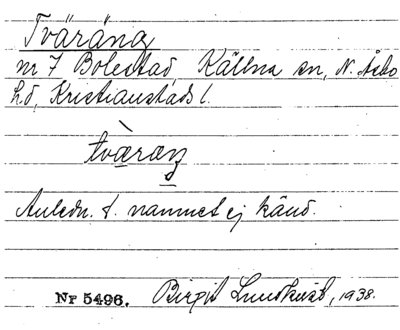 Tväräng
nr 7 Bolestad, Källna sn, N. Åsbo
hd, Kristianstads l.
tvæ̀ræŋ
Anledn. t. namnet ej känd.
Nr 5496. Birgit Lundkvist, 1938.